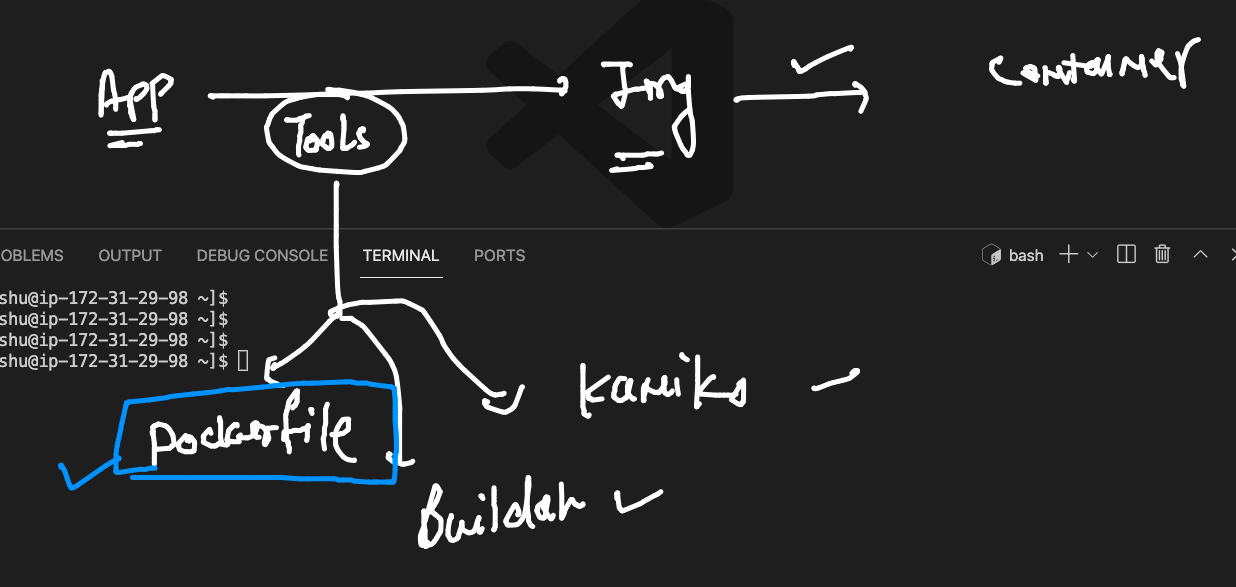 App
Tools
Img
Container
OBLEMS OUTPUT DEBUG CONSOLE TERMINAL PORTS bash
shu@ip-172-31-29-98 ~]$
shu@ip-172-31-29-98 ~]$
shu@ip-172-31-29-98 ~]$
shu@ip-172-31-29-98 ~]$
Kaniko
Dockerfile
Buildah